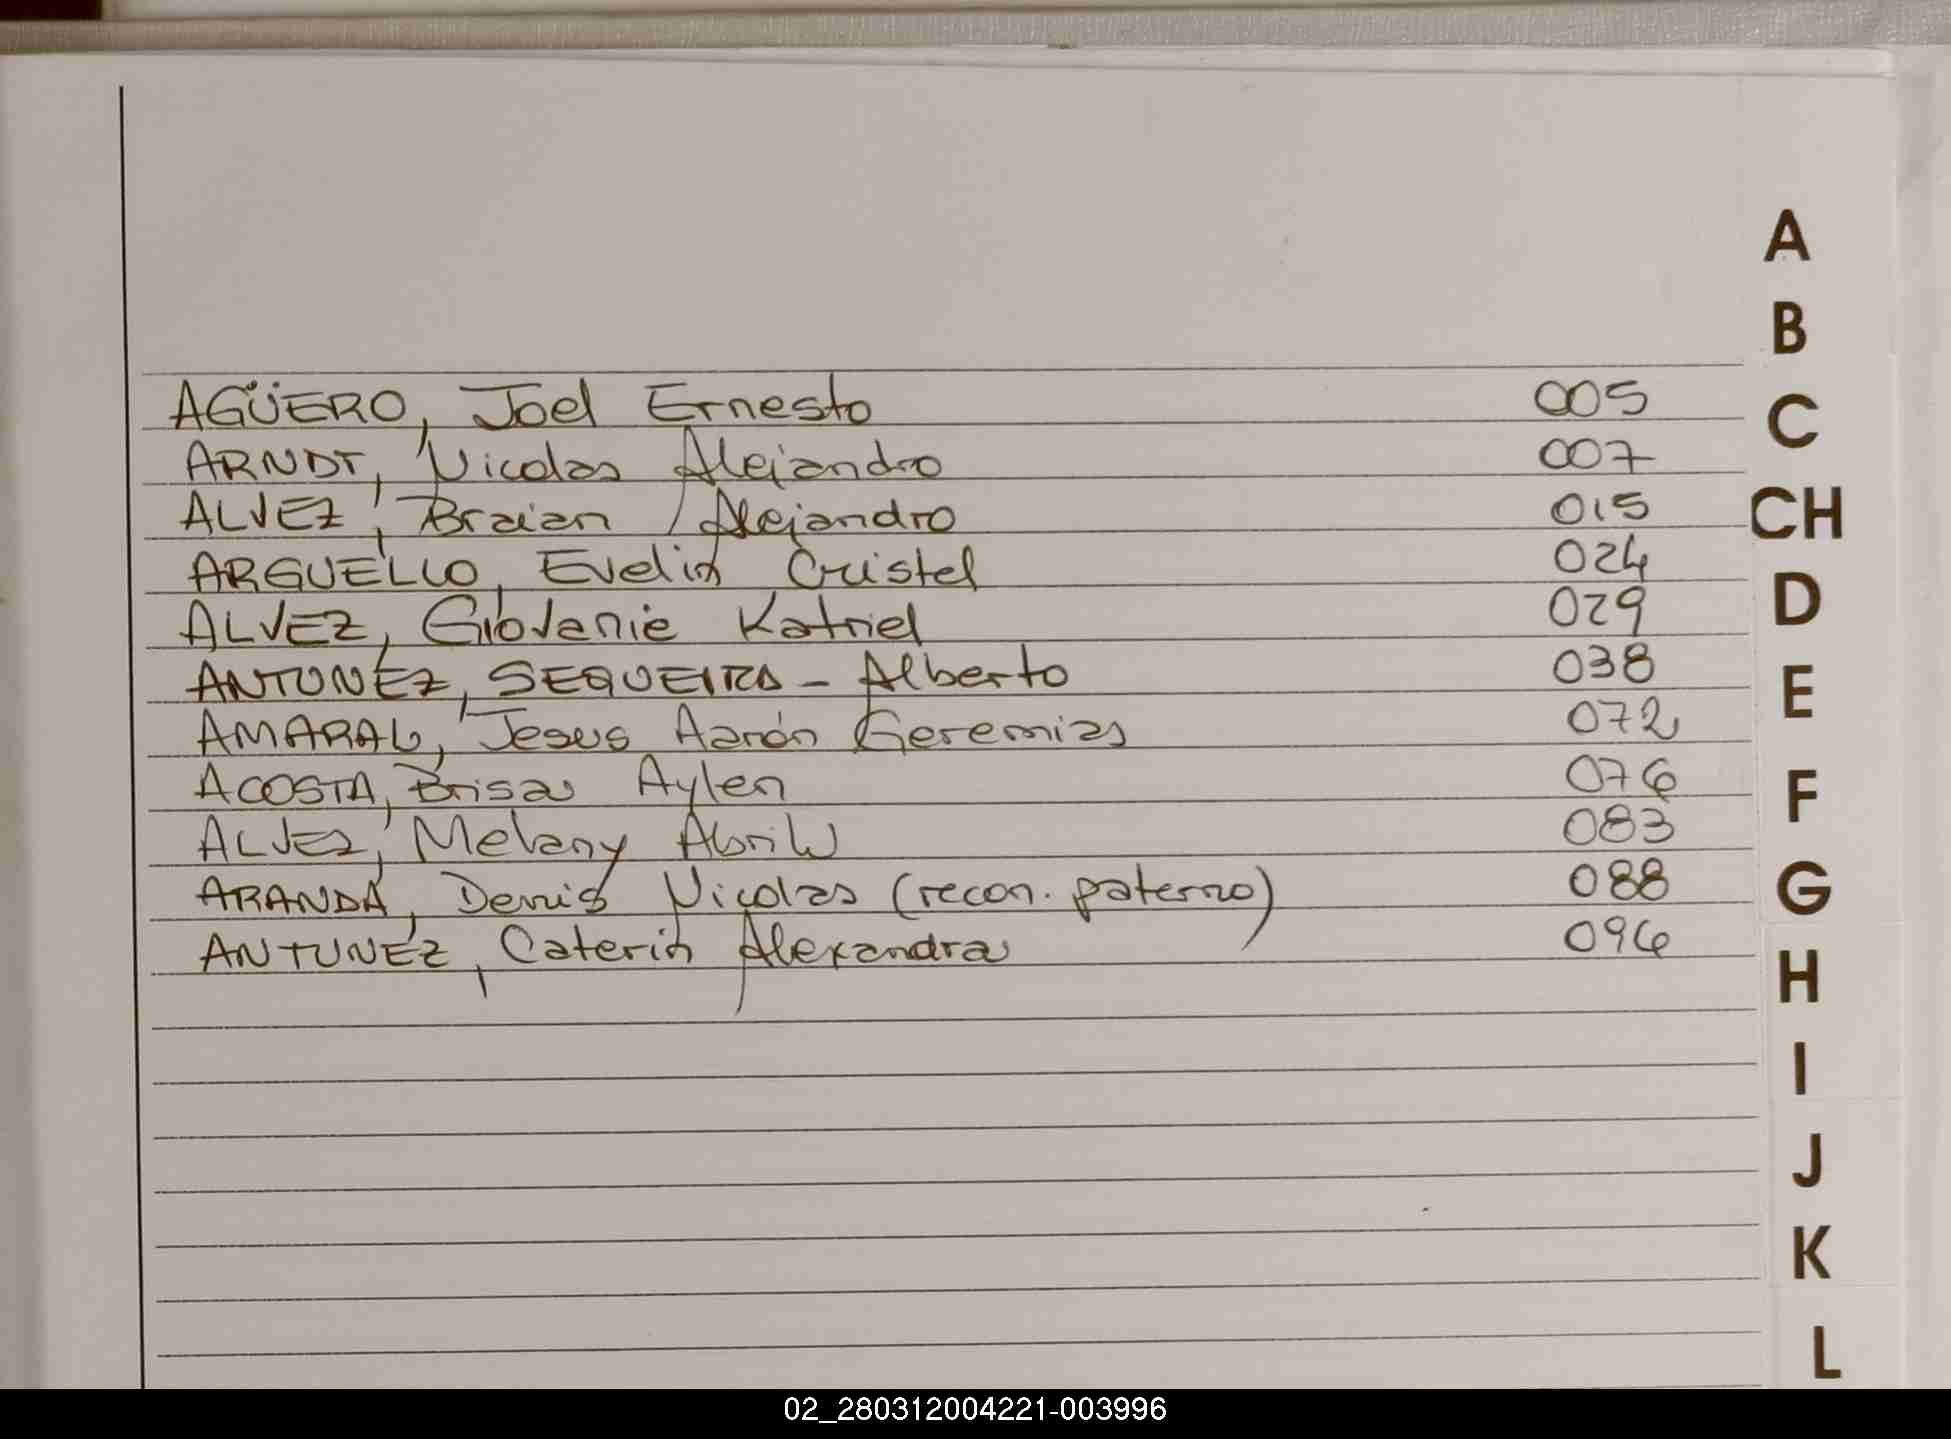 AGÜERO, Joel Ernesto 005
ARNDT, Nicolas Alejandro 007
ALVEZ, Braian Alejandro 015
ARGUELLO, Evelin Cristel 024
ALVEZ, Giovanie Katriel 029
ANTUNEZ, SEQUEIRA - Alberto 038
AMARAL, Jesus Aarón Geremias 072
ACOSTA, Brisa Aylen 076
ALVEZ, Melany Abril 083
ARANDA, Denis Nicolas (recon. paterno) 088
ANTUNEZ, Caterin Alexandra 096
A
B
C
CH
D
E
F
G
H
I
J
K
L
02_280312004221-003996